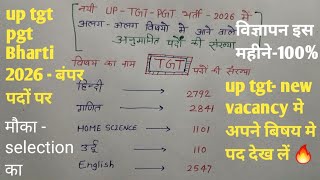 नयी UP-TGT-PGT भर्ती - 2026 में
अलग-अलग विषयो में आने वाले
अनुमानित पदों की संख्या
विषय का नाम TGT पदों की संख्या
हिन्दी → 2792
गणित → 2841
HOME SCIENCE → 1101
उर्दू → 110
English → 2547
up tgt
pgt
Bharti
2026 - बंपर
पदों पर
मौका -
selection
का
विज्ञापन इस
महीने-100%
up tgt- new
vacancy मे
अपने बिषय मे
पद देख लें 🔥